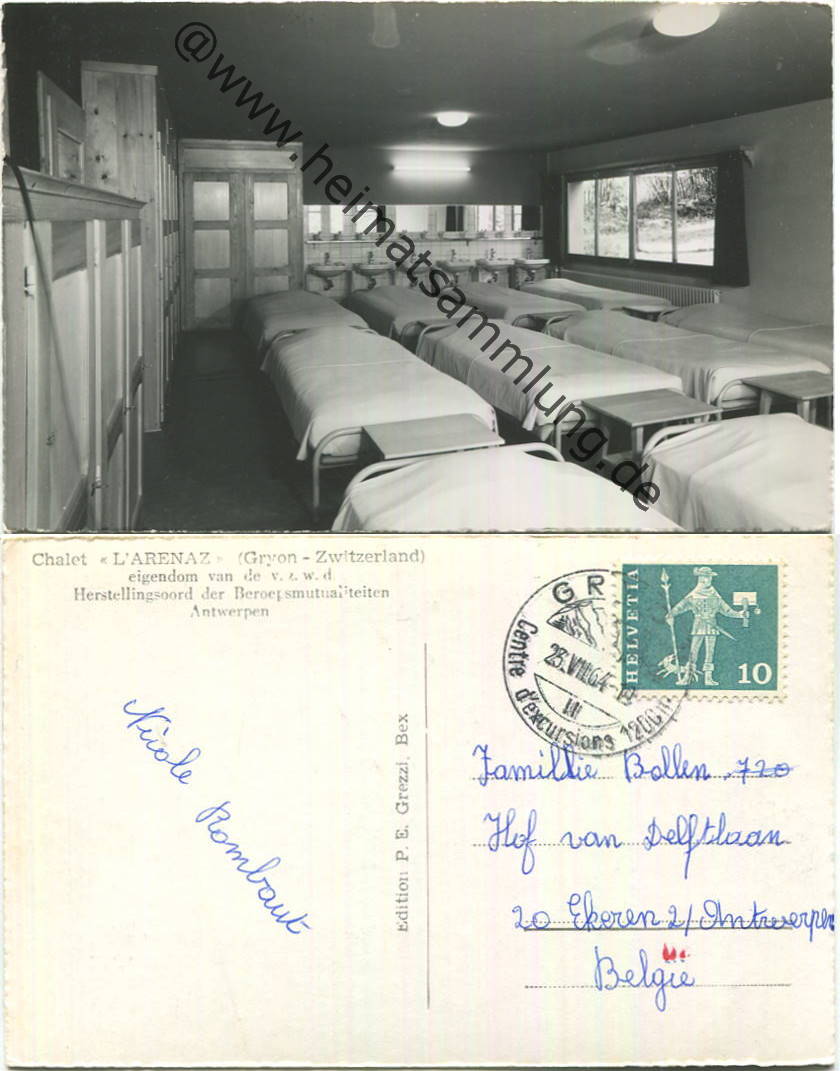 @www.heimatsammlung.de
Chalet « L'ARENAZ » (Gryon - Zwitzerland)
eigendom van de v. z. w. d
Herstellingsoord der Beroepsmutualiteiten
Antwerpen
Nicole Rombaut
Edition P. E. Grezzi, Bex
GR
23.VIII.64-19
Centre d'excursions 1200m
HELVETIA
10
Familie Bollen, 720
Hof van Delftlaan
20 Ekeren 2/Antwerpen
België